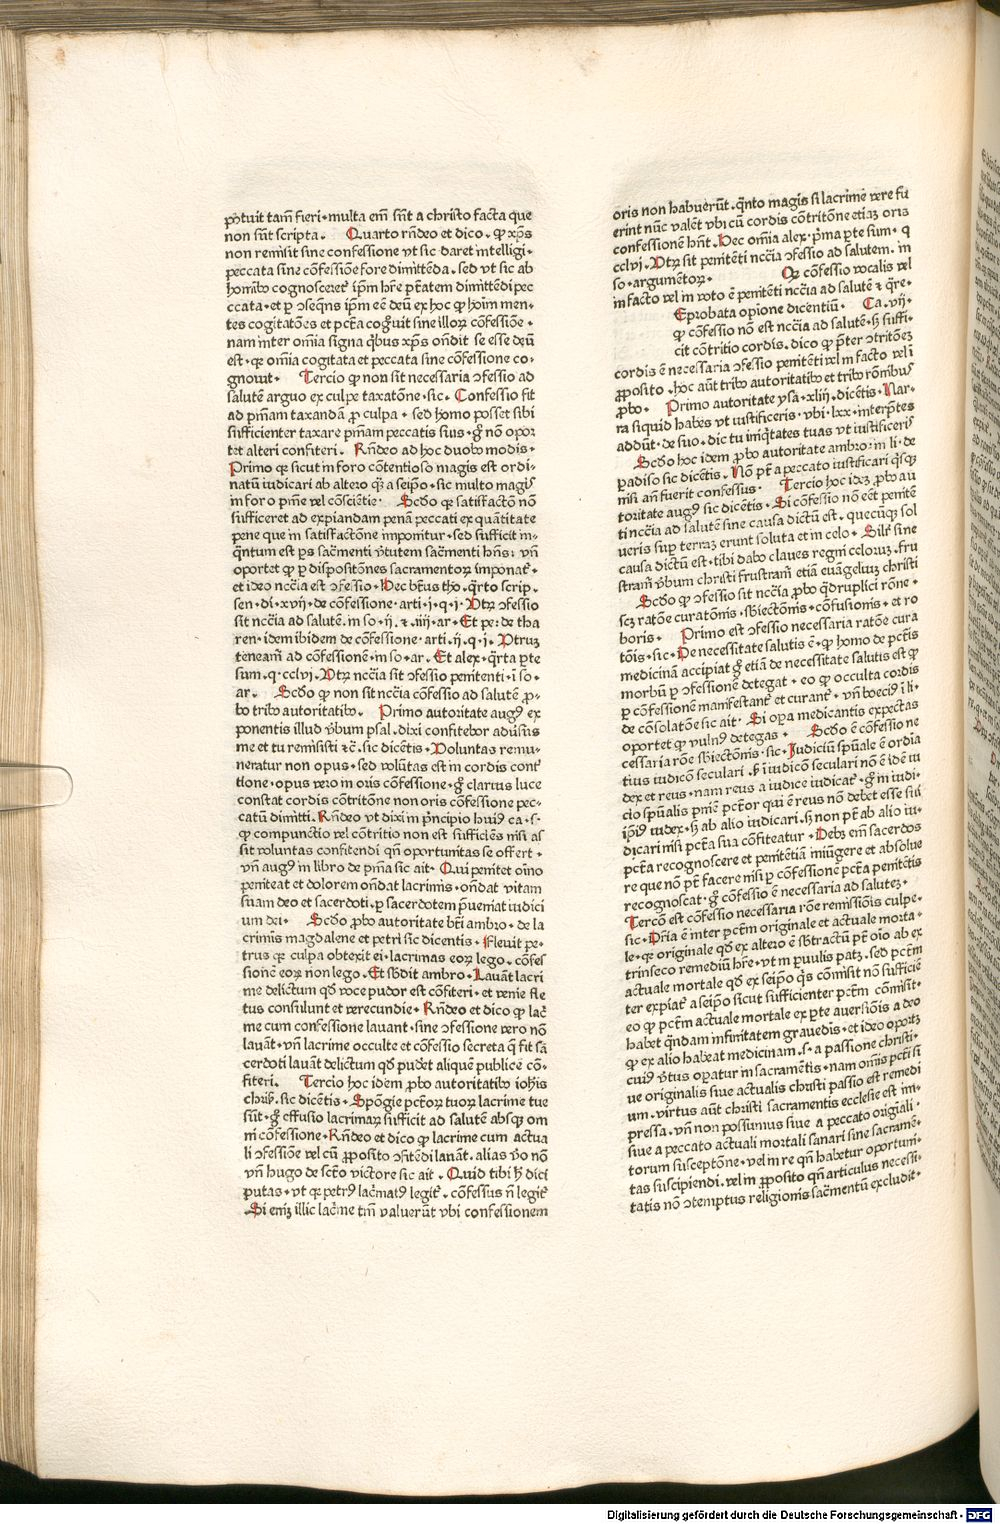 potuit tamē fieri·multa em̄ sūt a christo facta que
non sūt scripta· Quarto rn̄deo et dico·qꝫ xp̄s
non remisit sine confessione vt sic daret intelligi·
peccata sine cōfessiōe fore dimittēda·sed vt sic ab
homībꝰ cognosceretᷣ ip̄m hr̄e p̄tatem dimittēdi pec
ccata·et ꝑ ↄseqn̄s ip̄m eē deū ex hoc qꝫ hoīm men-
tes cogitatōes et pctā cogͦuit sine illoꝝ cōfessiōe·
nam inter om̄ia signa qͥbus xp̄s on̄dit se esse deū
est·qꝛ om̄ia cogitata et peccata sine cōfessione co-
gnouit· Tercio qꝫ non sit necessaria ↄfessio ad
salutē arguo ex culpe taxatōne·sic· Confessio fit
ad pn̄am taxandā ꝓ culpa· sed homo posset sibi
sufficienter taxare pn̄am peccatis suis·gͦ nō opor
tet alteri confiteri· Rn̄deo ad hoc duobꝰ modis·
Primo qꝛ sicut in foro cōtentioso magis est ordi-
natū iudicari ab altero qͣꝫ a seip̄o·sic multo magis
in foro pn̄ie vel cōsciētie· Scd̄o qꝛ satisfactō nō
sufficeret ad expiandam penā peccati ex quātitate
pene que in satisfactōne imponitur·sed sufficit in-
qͣntum est ꝑs sac̄menti v̄tutem sac̄menti hn̄s: vn̄
oportet qꝫ ꝑ dispositōnes sacramentoꝝ imponatᷣ·
et ideo nccīa est ↄfessio·Hec bt̄us tho·qͣrto scrip-
sen·di·xvij·de cōfessione·arti·j·q·j·Vtꝝ ↄfessio
sit nccīa ad salutē·in so·ij·⁊·iiij·ar·Et pe: de tha
ren·idem ibidem de cōfessione·arti·ij·q·j·Vtruꝫ
teneam̄ ad cōfessionē·in so·ar·Et alex·qͣrta ꝑte
sum·q·cclvj·Vtꝝ nccīa sit ↄfessio penitenti·ī so·
ar· Scd̄o qꝫ non sit nccīa cōfessio ad salutē ꝓ-
bo tribꝰ autoritatibꝰ· Primo autoritate augꝰ ex
ponentis illud v̄bum psal·dixi confitebor adūsus
me et tu remisisti ⁊c̄·sic dicētis·Voluntas remu-
neratur non opus·sed volūtas est in cordis contͥ
tione·opus vero in oris cōfessione·gͦ clarius luce
constat cordis cōtritōne non oris cōfessione pec-
catū dimitti·Rn̄deo vt dixi in pͥncipio huiꝰ ca·s·
qꝫ compunctio vel cōtritio non est sufficiēs nisi as
sit voluntas confitendi qn̄ oportunitas se offert·
vn̄ augꝰ in libro de pn̄ia sic ait· Qui penitet oīno
peniteat et dolorem on̄dat lacrimis·on̄dat vitam
suam deo et sacerdoti·ꝑ sacerdotem p̄ueniat iudici
um dei· Scd̄o ꝓbo autoritate bt̄i ambro·de la
crimis magdalene et petri sic dicentis·Fleuit pe-
trus qꝛ culpa obtexit ei·lacrimas eoꝝ lego·cōfes
sionē eoꝝ non lego·Et sb̄dit ambro·Lauāt lacri
me delictum qd̄ voce pudor est cōfiteri·et venie fle
tus consulunt et verecundie·Rn̄deo et dico qꝫ lacͥ
me cum confessione lauant·sine ↄfessione vero nō
lauāt·vn̄ lacrime occulte et cōfessio secreta q̄ fit sā
cerdoti lauāt delictum qd̄ pudet aliquē publice cō-
fiteri· Tercio hoc idem ꝓbo autoritatibꝰ ioh̄is
chris̄·sic dicētis·Spōgie pctōꝝ tuoꝝ lacrime tue
sūt·gͦ effusio lacrimaꝝ sufficit ad salutē absqꝫ om
ni cōfessione·Rn̄deo et dico qꝫ lacrime cum actua
li ↄfessiōe vel cū ꝓposito ↄfitēdi lauāt·alias v̄o nō
vn̄ hugo de scto victore sic ait· Quid tibi hͦ dici
putas·vt qꝛ petrꝰ lac̄matꝰ legitᷣ·cōfessus n̄ legitᷣ
Si em̄ illic lac̄me tm̄ valuerūt vbi confessionem
oris non habuerūt·qͣnto magis si lacrime vere fu
erint nūc valēt vbi cū cordis cōtritōne etiaꝫ oris
confessionē hn̄t·Hec om̄ia alex·pͥma ꝑte sum·q
cclvj·Vtꝝ sit penitēti nccīa ↄfessio ad salutem·in
so·argumētoꝝ· Qꝫ cōfessio vocalis vel
in facto vel in voto ē penitēti nccīa ad salutē ⁊ qͣre·
Eprobata opiōne dicentiū· Ca·vij·
qꝫ confessio nō est nccīa ad salutē·sꝫ suffi-
cit cōtritio cordis·dico qꝫ p̄ter ↄtritōeꝫ
cordis ē necessaria ↄfessio penitēti vel in facto vel ī
ꝓposito·hoc aūt tribꝰ autoritatibꝰ et tribꝰ rōnibꝰ
ꝓbo· Primo autoritate ysa·xliij·dicētis·Nar-
ra siquid habes vt iustificeris·vbi·lxx·interp̄tes
addūt·de suo·dic tu iniqͥtates tuas vt iustificeris
Scd̄o hoc idem ꝓbo autoritate ambro·in li·de
padiso sic dicētis·Nō pt̄ a peccato iustificari qͥsqꝫ
nisi an̄ fuerit confessus· Tercio hoc ideꝫ ꝓbo au
toritate augꝰ sic dicētis·Si cōfessio nō eēt penitē
ti nccīa ad salutē sine causa dictū est·quecūqꝫ sol
ueris suꝑ terraꝫ erunt soluta et in celo·Silꝭ sine
causa dictū est·tibi dabo claues regni celoruꝫ·fru
stram̄ v̄bum christi frustram̄ etiā euāgeliuꝫ christi
Scd̄o qꝫ ↄfessio sit nccīa ꝓbo qͣdruplici rōne·
scꝫ ratōe curatōnis·sb̄iectōnis·cōfusionis·et ro
boris· Primo est ↄfessio necessaria ratōe cura
tōis·sic·De necessitate salutis ē·qꝫ homo de pctīs
medicinā accipiat gͦ etiā de necessitate salutis est qꝫ
morbū ꝑ ↄfessionē detegat·eo qꝫ occulta cordis
ꝑ confessionē manifestantᷣ et curantᷣ·vn̄ boeciꝰ ī li·
de cōsolatōe sic ait· Si oꝑa medicantis expectas
oportet qꝫ vulnꝰ detegas· Scd̄o ē cōfessio ne
cessaria rōe sb̄iectōnis·sic·Judiciū sp̄uale ē ordīa
tius iudicō seculari·sꝫ ī iudicō seculari nō ē idē iu
dex et reus·nam reus a iudice iudicatᷣ·gͦ in iudi-
cio sp̄ualis pn̄ie pctōr qui ē reus nō debet esse sui
ip̄iꝰ iudex·sꝫ ab alio iudicari·sꝫ non pt̄ ab alio iu-
dicari nisi pctā sua cōfiteatur·Debꝫ em̄ sacerdos
pctā recognoscere et penitētiā iniūgere et absolue
re que nō pt̄ facere nisi ꝑ cōfessionē pctā penitētis
recognoscat·gͦ cōfessio ē necessaria ad saluteꝫ·
Tercō est cōfessio necessaria rōe remissiōis culpe·
sic·Dr̄ia ē inter pctm̄ originale et actuale morta-
le·qꝛ originale qd̄ ex altero ē ↄtractū pt̄ oīo ab ex
trinseco remediū hr̄e·vt in ꝑuulis patꝫ·sed pctm̄
actuale mortale qd̄ ex seip̄o qͥs cōmisit nō sufficiē
ter expiatᷣ a seip̄o sicut sufficienter pctm̄ cōmisit·
eo qꝫ pctm̄ actuale mortale ex ꝑte auersiōis a deo
habet qͣndam infinitatem grauedis·et ideo oportꝫ
qꝫ ex alio habeat medicinam·s·a passione christi·
cuiꝰ v̄tus oꝑatur in sacramētis·nam om̄is pctī si
ue originalis siue actualis christi passio est remedi
um·virtus aūt christi sacramentis ecclesie est im-
pressa·vn̄ non possumus siue a peccato originali·
siue a peccato actuali mortali sanari sine sacramē-
torum susceptōne·vel in re qn̄ habetur oportuni-
tas suscipiendi·vel in ꝓposito qn̄ articulus necessi-
tatis nō ↄtemptus religionis sac̄mentū excludit·
Digitalisierung gefördert durch die Deutsche Forschungsgemeinschaft - DFG